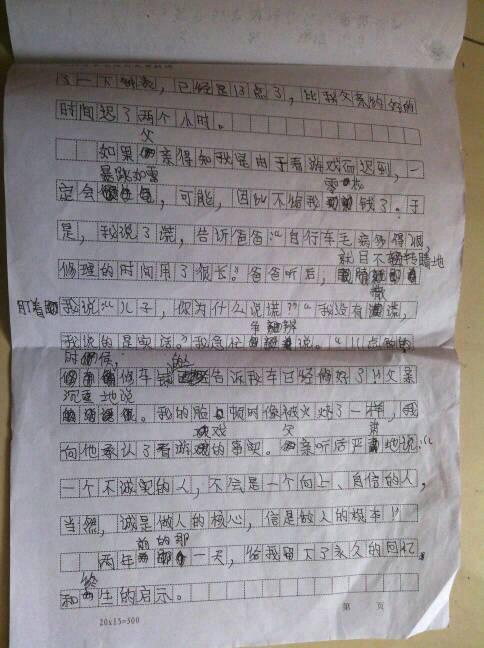 一下钟表，已经是13点了，比我父亲约好的
时间迟了两个小时。
如果父亲得知我是由于看游戏而迟到，一
定会暴跳如雷，可能，因此不给我零花钱了。于
是，我说了谎，告诉爸爸：“自行车毛病多得很，
修理的时间用了很长。”爸爸听后，就目不转睛地
盯着我说：“儿子，你为什么说谎？”“我没有撒谎，
我说的是实话。”我急忙争辩说。“11点的
时候，修车铺告诉我车已经修好了！”父亲
沉重地说。我的脸顿时像被火烧了一样，我
向他承认了看游戏的事实。父亲听后严肃地说：“
一个不诚实的人，不会是一个向上、自信的人，
当然，诚是做人的核心，信是做人的根本！”
两年前的那一天，给我留下了永久的回忆，
和终生的启示。
第 页
20x15=300